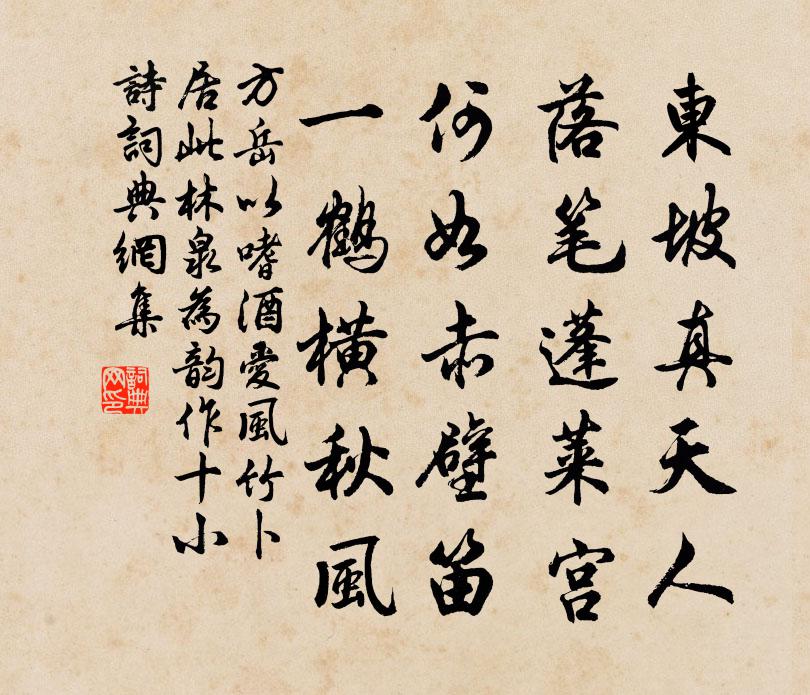 東坡真天人
落笔蓬莱宮
何如赤壁笛
一鶴横秋風
方岳以嗜酒愛風竹卜
居此林泉為韵作十小
詩詞典網集
詞典
网印